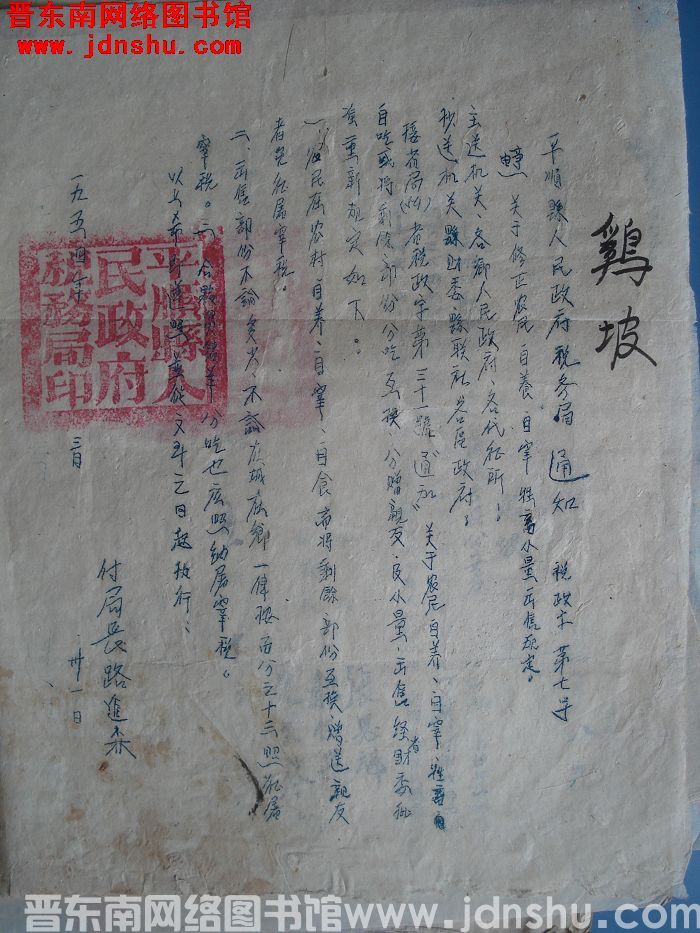 晋东南网络图书馆
www.jdnshu.com
鷄坡
平順縣人民政府税务局 通知 税政字第七号
关于修正农民自养自宰牲畜小量出售规定。
主送机关、各鄉人民政府、各代征所;
抄送机关 縣财委縣联社各區政府;
接省局(54)省税政字第三十一號"通知"关于农民自养、自宰、牲畜
自吃或将剩余部份分吃互换、分赠親友、及小量出售、经省财委批
准重新规定如下。
一、农民在农村自养、自宰、自食而将剩餘部份互换赠送親友
者免征屠宰税。
二、出售部份不論多少、不論在城在鄉一律按百分之十三照征屠
宰税。三、合夥 分吃也应照纳屠宰税。
以上希即遵照並从文到之日起执行;
付局長路進森
一九五四年 三月 卅一日
平順縣人民政府税務局印
晋东南网络图书馆www.jdnshu.com